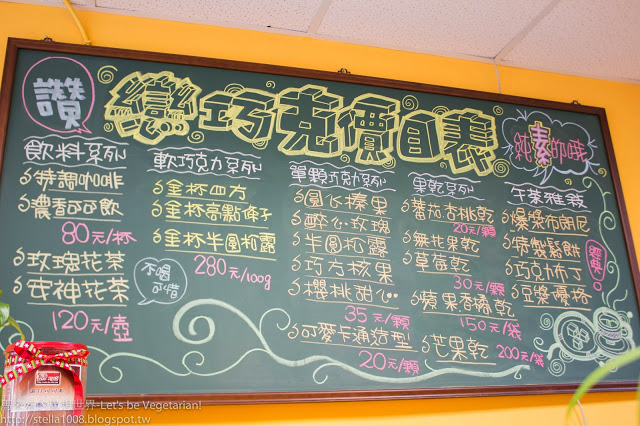 讚
戀巧克價目表
純素ㄉ哦
飲料系列
特調咖啡
濃香可可飲
80元/杯
玫瑰花茶
安神花茶
120元/壺
軟巧克力系列
金杯四方
金杯亮點條子
金杯半圓松露
280元/100g
不喝可惜
單顆巧克力系列
圓心榛果
醉心玫瑰
半圓松露
巧方核果
櫻桃甜心
35元/顆
可麥卡通造型
20元/顆
果乾系列
蕃茄杏桃乾
20元/顆
無花果乾
草莓乾
30元/顆
蘋果香橘乾
150元/袋
芒果乾
200元/袋
下午茶雅敘
爆漿布朗尼
特製鬆餅
巧克力布丁
豆漿優格
經典
世界-Let's be Vegetarian!
http://stella1008.blogspot.tw